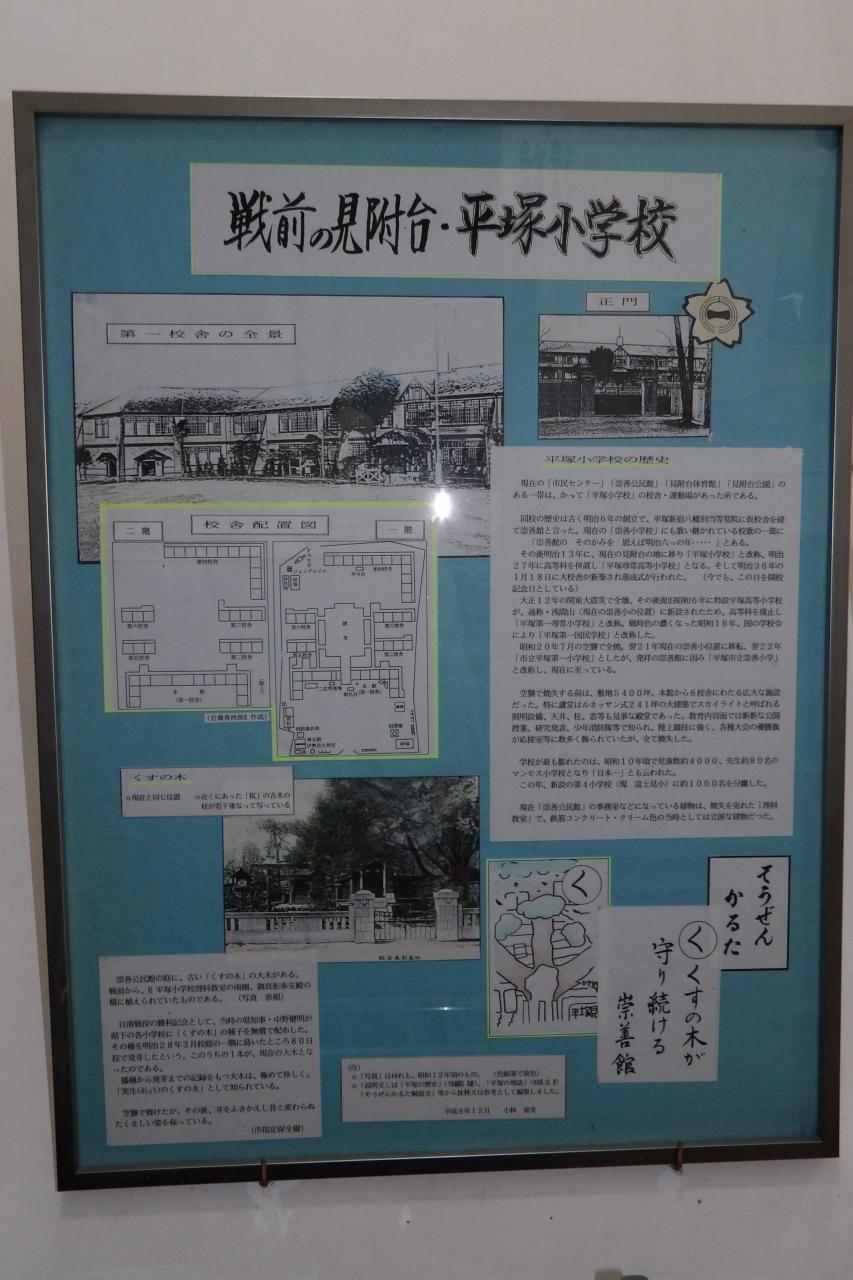 戦前の見附台・平塚小学校
第一校舎の全景
正門
平塚小学校の歴史
現在の「市民センター」「崇善公民館」「見附台体育館」「見附台公園」の
ある一帯は、かって「平塚小学校」の校舎・運動場があった所である。
同校の歴史は古く明治６年の創立で、平塚新宿八幡別当等覚院に仮校舎を建
て崇善館と言った。現在の「崇善小学校」にも歌い継がれている校歌の一節に
「崇善館の　そのかみを　思えば明治六っの年‥‥　」とある。
その後明治１３年に、現在の見附の地に移り「平塚小学校」と改称、明治
２７年に高等科を併置し「平塚尋常高等小学校」となる。そして明治３６年の
１月１８日に大校舎が新築され落成式が行われた。　（今でも、この日を開校
記念日としている）
大正１２年の関東大震災で全壊、その後復旧昭和６年に特設平塚高等小学校
が、通称・浅間山（現在の崇善小の位置）に新設されたため、高等科を廃止し
「平塚第一尋常小学校」と改称。戦時色の濃くなった昭和１６年、国の学校令
により「平塚第一国民学校」と改称した。
昭和２０年７月の空襲で全焼。翌２１年現在の崇善小位置に移転、翌２２年
「市立平塚第一小学校」としたが、発祥の崇善館に因み「平塚市立崇善小学」
と改称し、現在に至っている。
空襲で焼失する前は、敷地５４００坪、本館から６校舎にわたる広大な施設
だった。特に講堂はルネッサン式２４１坪の大建築でスカイライトと呼ばれる
照明設備、天井、柱、窓等も見事な殿堂であった。教育内容面では斬新な公開
授業、研究発表、少年消防隊等で知られ、陸上競技に強く、各種大会の優勝旗
が応接室等に数多く飾られていたが、全て焼失した。
学校が最も膨れたのは、昭和１０年頃で児童数約４０００、先生約８０名の
マンモス小学校となり「日本一」とも云われた。
この年、新設の第４小学校（現　富士見小）に約１０００名を分離した。
現在「崇善公民館」の事務室などになっている建物は、焼失を免れた「理科
教室」で、鉄筋コンクリート・クリーム色の当時としては立派な建物だつた。
校舎配置図
二階
第四校舎
第六校舎
第三校舎
第五校舎
第二校舎
本館
（第一校舎）
一階
ジャングルジム
第四校舎
第六校舎
講堂
第三校舎
第五校舎
第二校舎
本館
（第一校舎）
砂場
くすの木
o現在と同じ位置　o近くにあった「桜」の古木の
枝が若干重なって写っている
崇善公民館の庭に、古い「くすの木」の大木がある。
戦前から、旧平塚小学校理科教室の南側、御真影奉安殿の
横に植えられていたものである。　（写真　参照）
日清戦役の勝利記念として、当時の県知事・中野健明が
県下の各小学校に「くすの木」の種子を無償で配布した。
その種を明治２８年３月校庭の一隅に蒔いたところ８０日
程で発芽したという。このうちの１本が、現在の大木とな
ったのである。
播種から発芽までの記録をもつ大木は、極めて珍しく、
「実生(みしょう)のくすの木」として知られている。
空襲で焼けたが、その後、芽をふきかえし昔と変わらぬ
たくましい姿を保っている。
（市指定保全樹）
（注）
o「写真」は何れも、昭和１２年頃のもの。　（色鉛筆で着色）
「そうぜんかるた解説文」等から抜粋又は参考として編集しました。
平成９年１２月　小林
く
そうぜん
かるた
くくすの木が
守り続ける
崇善館